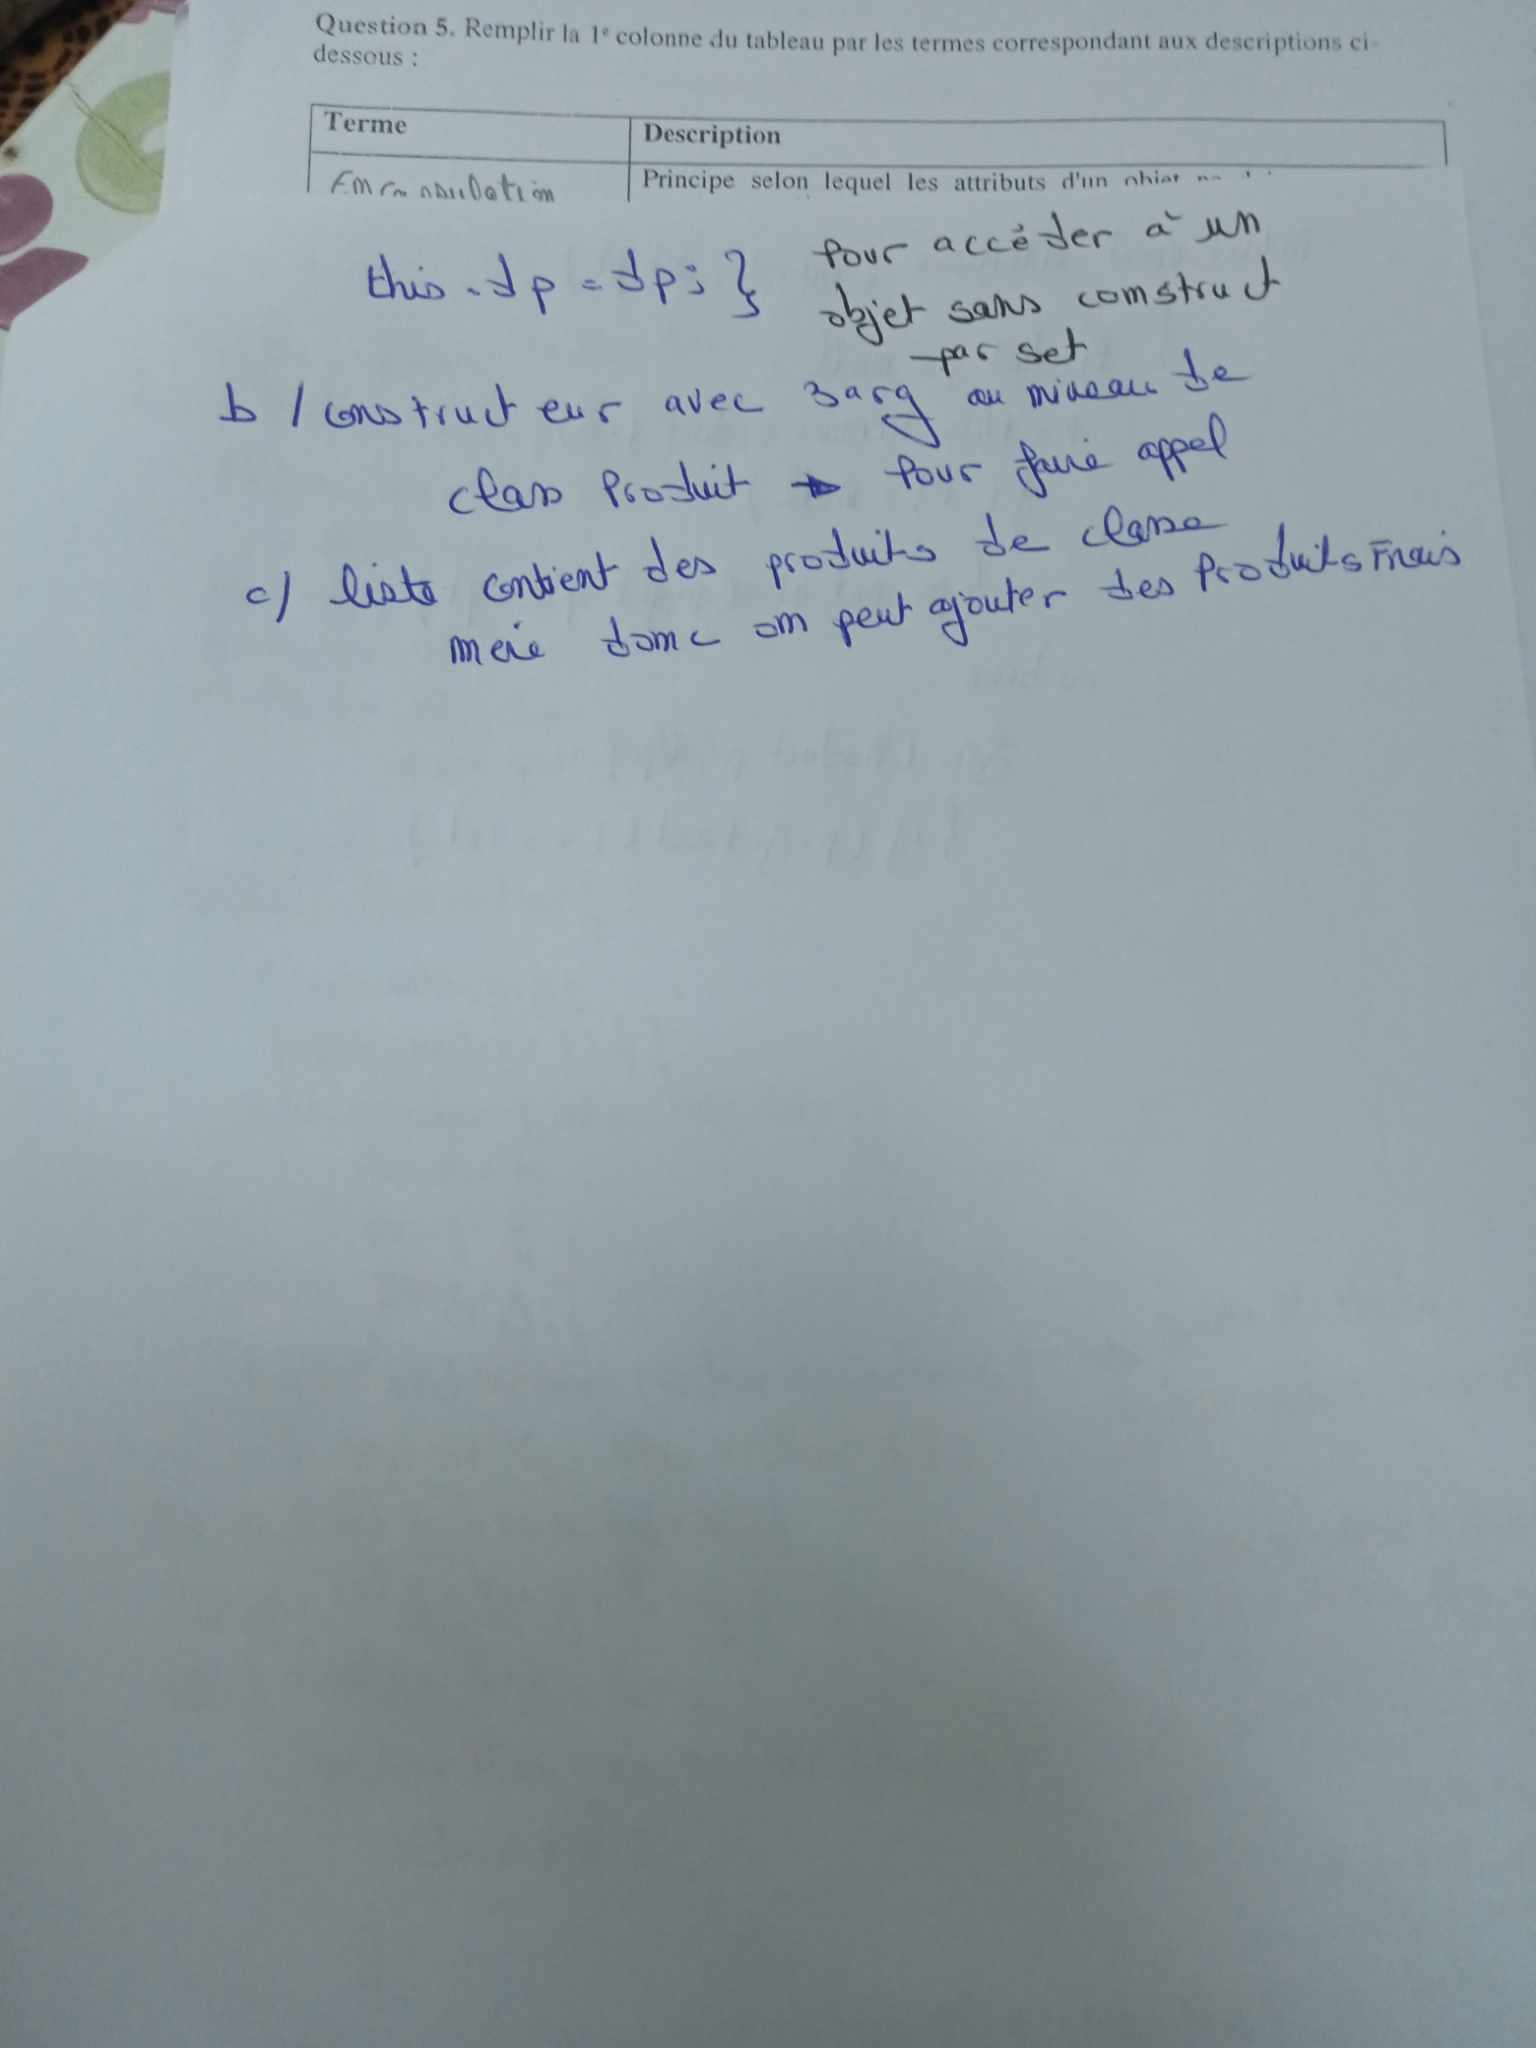 Question 5. Remplir la 1e colonne du tableau par les termes correspondant aux descriptions ci-
dessous :
Terme Description
Principe selon lequel les attributs d'un objet
this.dp = dp; } Pour accéder à un
objet sans construct
par set
b / constructeur avec 3 arg au niveau de
class Produit → Pour faire appel
c) liste contient des produits de classe
mère donc on peut ajouter des Produits Frais